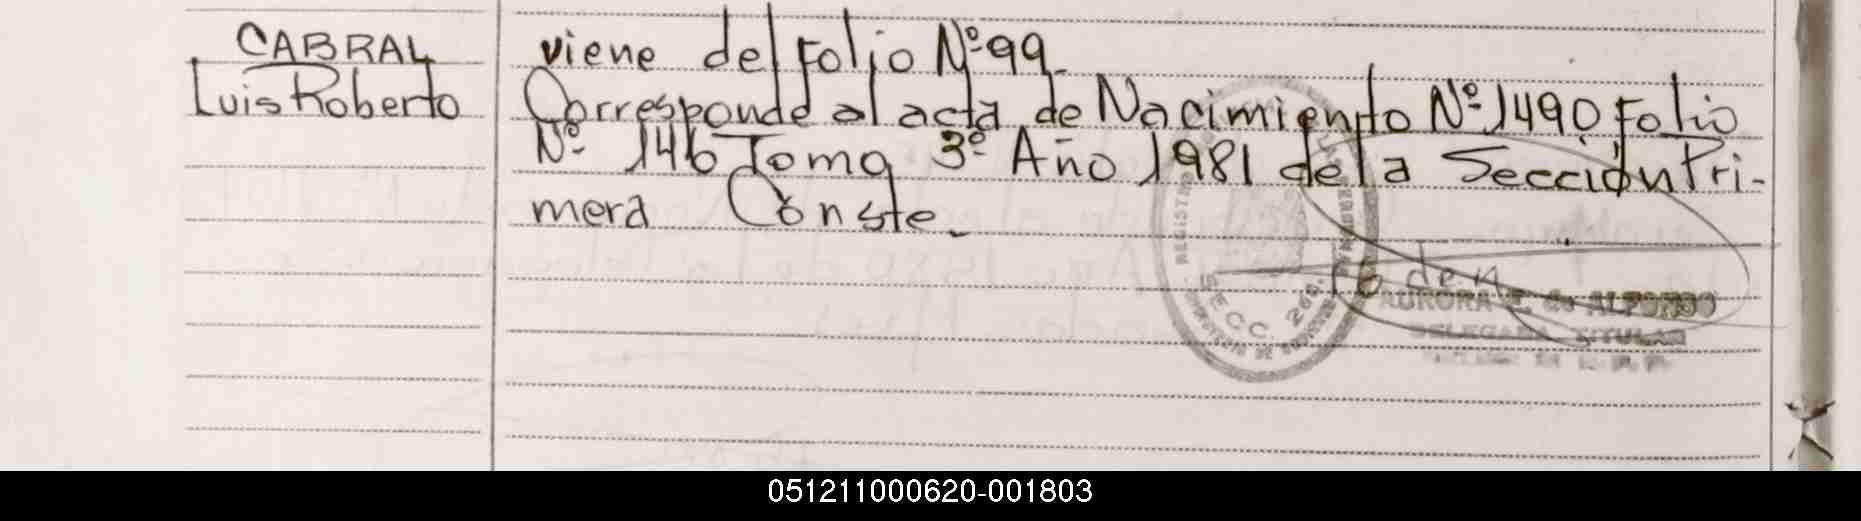 CABRAL
Luis Roberto
viene del folio Nº 99.
Corresponde al acta de Nacimiento Nº 1490 Folio
Nº 146 Tomo 3º Año 1981 de la Sección Pri-
mera Conste.
SECC. 2da.
AURORA E. de ALFONSO
DELEGADA TITULAR
051211000620-001803